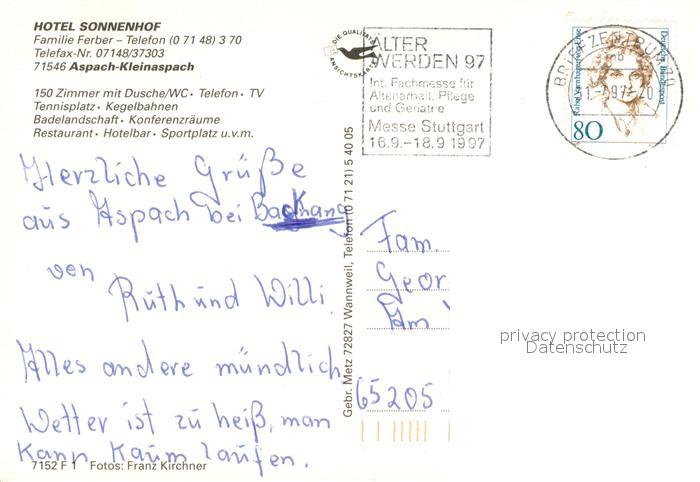 HOTEL SONNENHOF
Familie Ferber – Telefon (0 71 48) 3 70
Telefax-Nr. 07148/37303
71546 Aspach-Kleinaspach
150 Zimmer mit Dusche/WC · Telefon · TV
Tennisplatz · Kegelbahnen
Badelandschaft · Konferenzräume
Restaurant · Hotelbar · Sportplatz u.v.m.
DIE QUALITÄTS
ANSICHTSKARTE
ÄLTER
WERDEN 97
Int. Fachmesse für
Altenarbeit, Pflege
und Geriatrie
Messe Stuttgart
16.9.–18.9 1997
BRIEFZENTRUM 70
97-20
Rahel Varnhagen von Ense
Deutsche Bundespost
80
Herzliche Grüße
aus Aspach bei Backnang
von
Ruth und Willi
Alles andere mündlich
Wetter ist zu heiß, man
kann kaum laufen.
7152 F 1 Fotos: Franz Kirchner
Gebr. Metz 72827 Wannweil, Telefon (0 71 21) 5 40 05
Fam.
Geor
Am
65205
privacy protection
Datenschutz